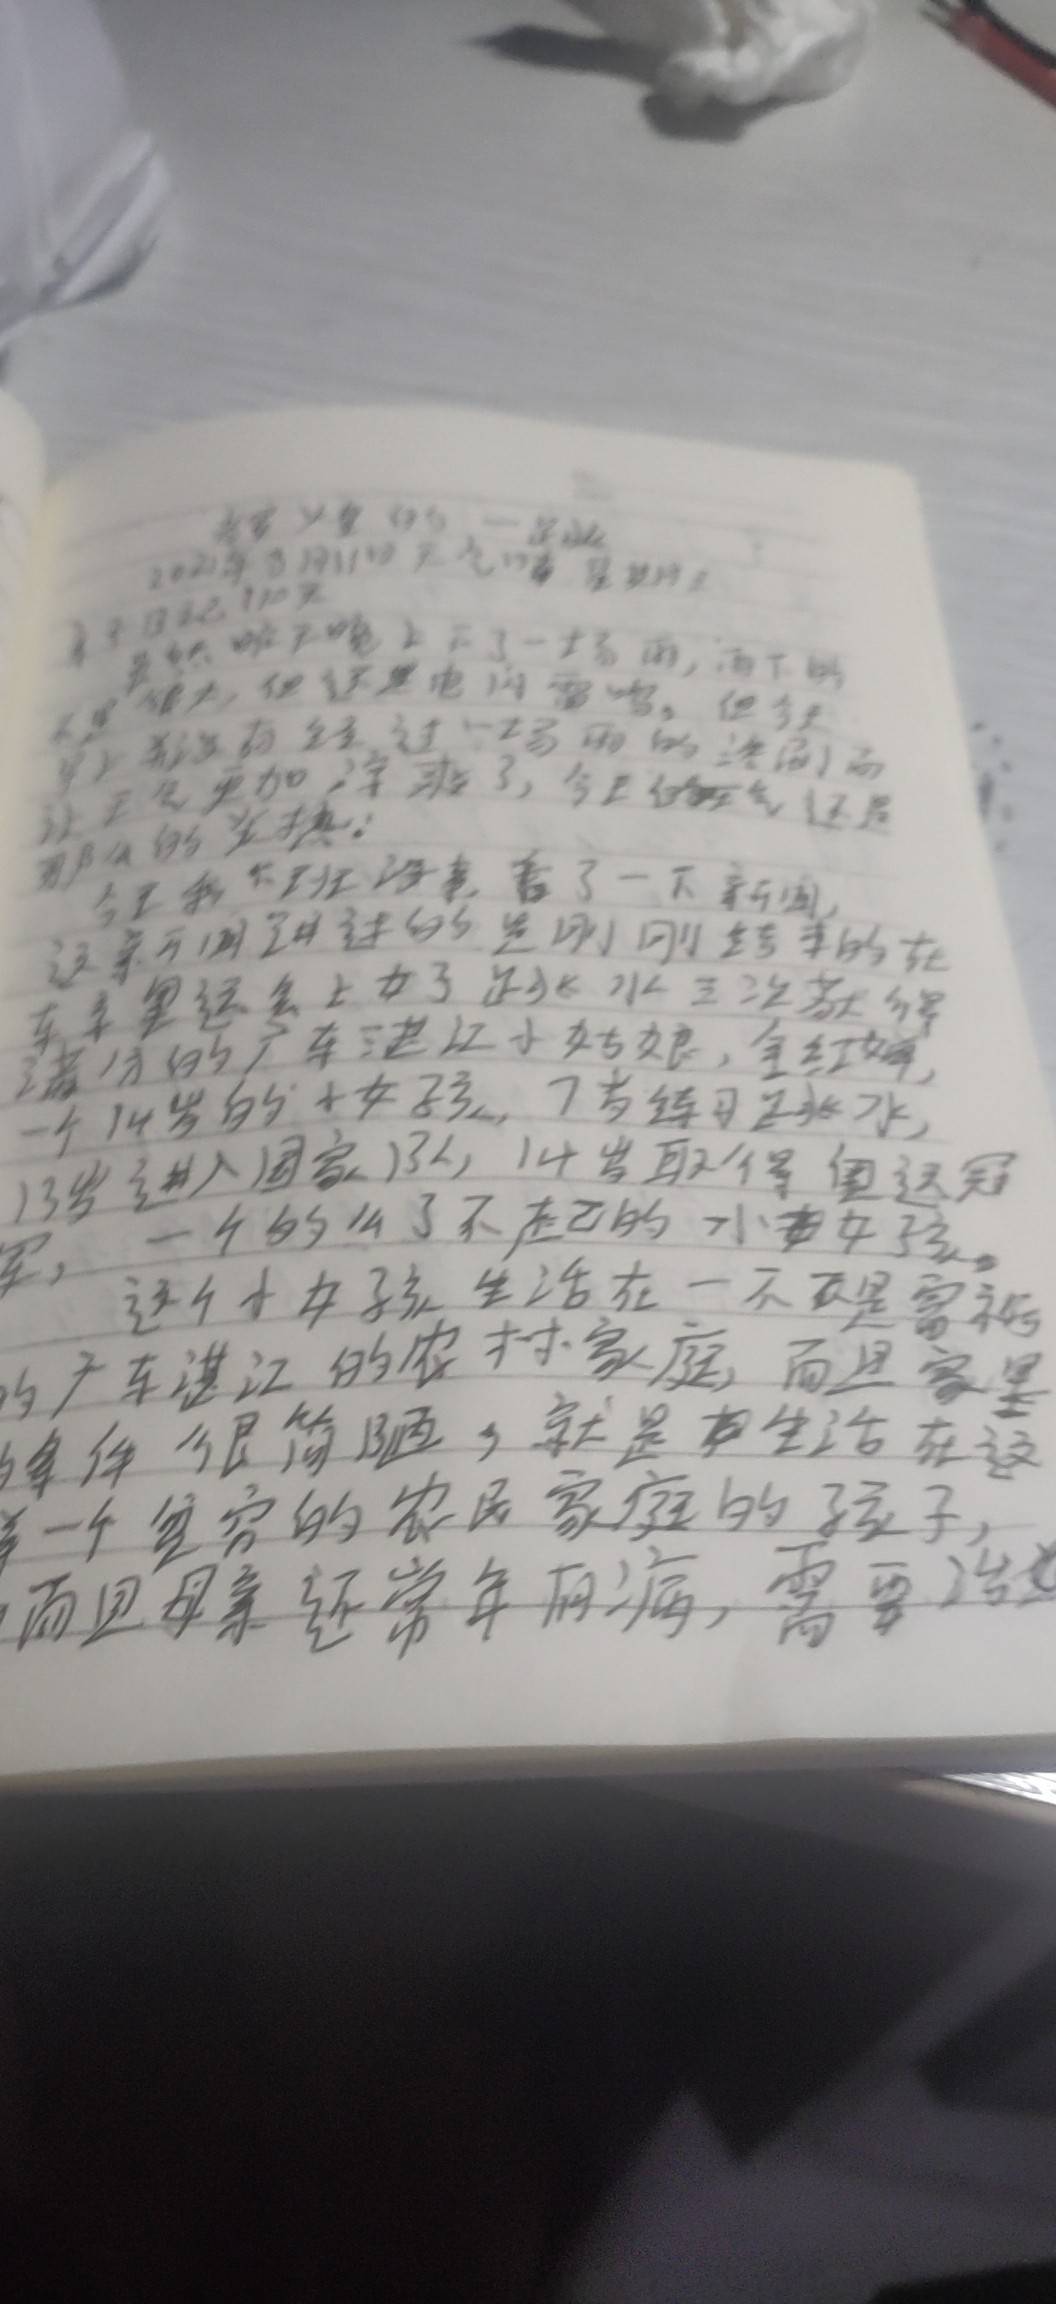 的一
2021年8月11日天气晴 星期三
日记110天
虽然昨天晚上下了一场雨，雨下的
不是很大，但还是电闪雷鸣。但今天
早上并没有经过一场雨的洗涮而
让天气更加凉爽了，今天的天气还是
那么的炎热。
今天我下班没事，看了一下新闻，
这条新闻讲述的是刚刚结束的在
东京奥运会上女子跳水三次获得
满分的广东湛江小姑娘，全红婵，
一个14岁的小女孩，7岁练习跳水，
13岁进入国家队，14岁取得奥运冠
军，一个的么了不起的小女孩。
这个小女孩生活在一不是富裕
的广东湛江的农村家庭，而且家里
的条件很简陋，就是生活在这
样一个贫穷的农民家庭的孩子，
而且母亲还常年有病，需要治